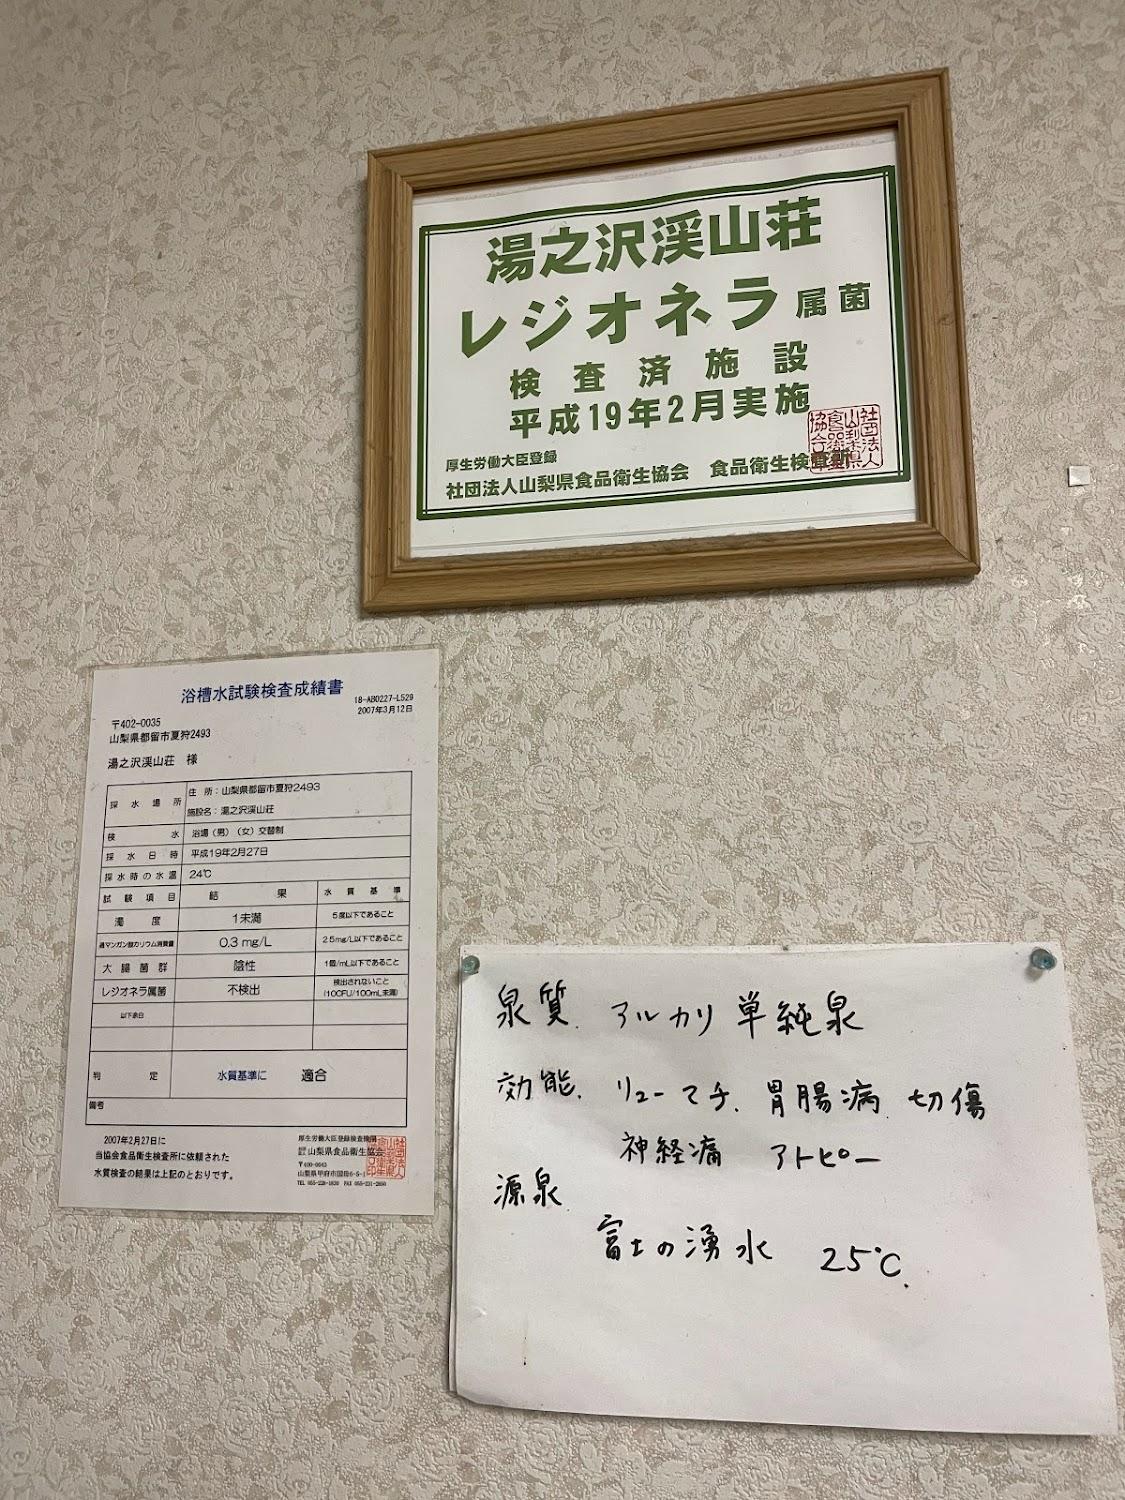 湯之沢渓山荘
レジオネラ属菌
検査済施設
平成19年2月実施
厚生労働大臣登録
社団法人山梨県食品衛生協会 食品衛生検査所
社団法人山梨県食品衛生協会
浴槽水試験検査成績書
18-AB0227-L529
2007年3月12日
〒402-0035
山梨県都留市夏狩2493
湯之沢渓山荘 様
採水場所 住所:山梨県都留市夏狩2493
施設名:湯之沢渓山荘
検水 浴場(男)(女)交替制
採水日時 平成19年2月27日
採水時の水温 24℃
試験項目 結果 水質基準
濁度 1未満 5度以下であること
過マンガン酸カリウム消費量 0.3 mg/L 25mg/L以下であること
大腸菌群 陰性 1個/mL以下であること
レジオネラ属菌 不検出 検出されないこと
(10CFU/100mL未満)
以下余白
判定 水質基準に 適合
備考
2007年2月27日に
当協会食品衛生検査所に依頼された
水質検査の結果は上記のとおりです。
厚生労働大臣登録検査機関
社団法人山梨県食品衛生協会
〒400-0043
山梨県甲府市国母6-5-1
TEL 055-228-1830 FAX 055-231-2650
泉質. アルカリ単純泉
効能. リューマチ. 胃腸病 切傷
神経痛 アトピー
源泉
富士の湧水 25℃.